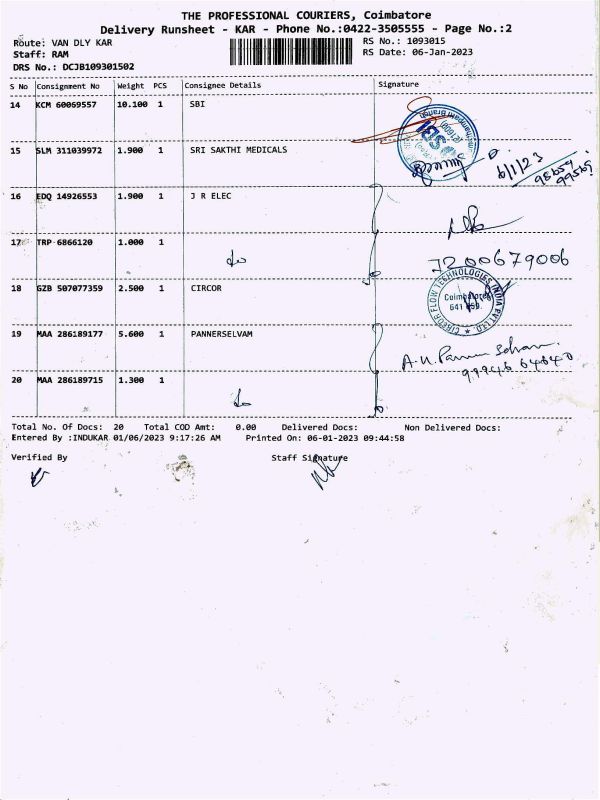 THE PROFESSIONAL COURIERS, Coimbatore
Delivery Runsheet - KAR - Phone No.:0422-3505555 - Page No.:2
Route: VAN DLY KAR
RS No.: 1093015
Staff: RAM
RS Date: 06-Jan-2023
DRS No.: DCJB109301502
S No Consignment No Weight PCS Consignee Details Signature
14 KCM 60069557 10.100 1 SBI
SBI
15 SLM 311039972 1.900 1 SRI SAKTHI MEDICALS
6/1/23
16 EDQ 14926553 1.900 1 J R ELEC
17 TRP 6866120 1.000 1
do
18 GZB 507077359 2.500 1 CIRCOR
CIRCOR FLOW TECHNOLOGIES INDIA PVT LTD.
Coimbatore
641
19 MAA 286189177 5.600 1 PANNERSELVAM
20 MAA 286189715 1.300 1
do
Total No. Of Docs: 20 Total COD Amt: 0.00 Delivered Docs: Non Delivered Docs:
Entered By :INDUKAR 01/06/2023 9:17:26 AM Printed On: 06-01-2023 09:44:58
Verified By Staff Signature